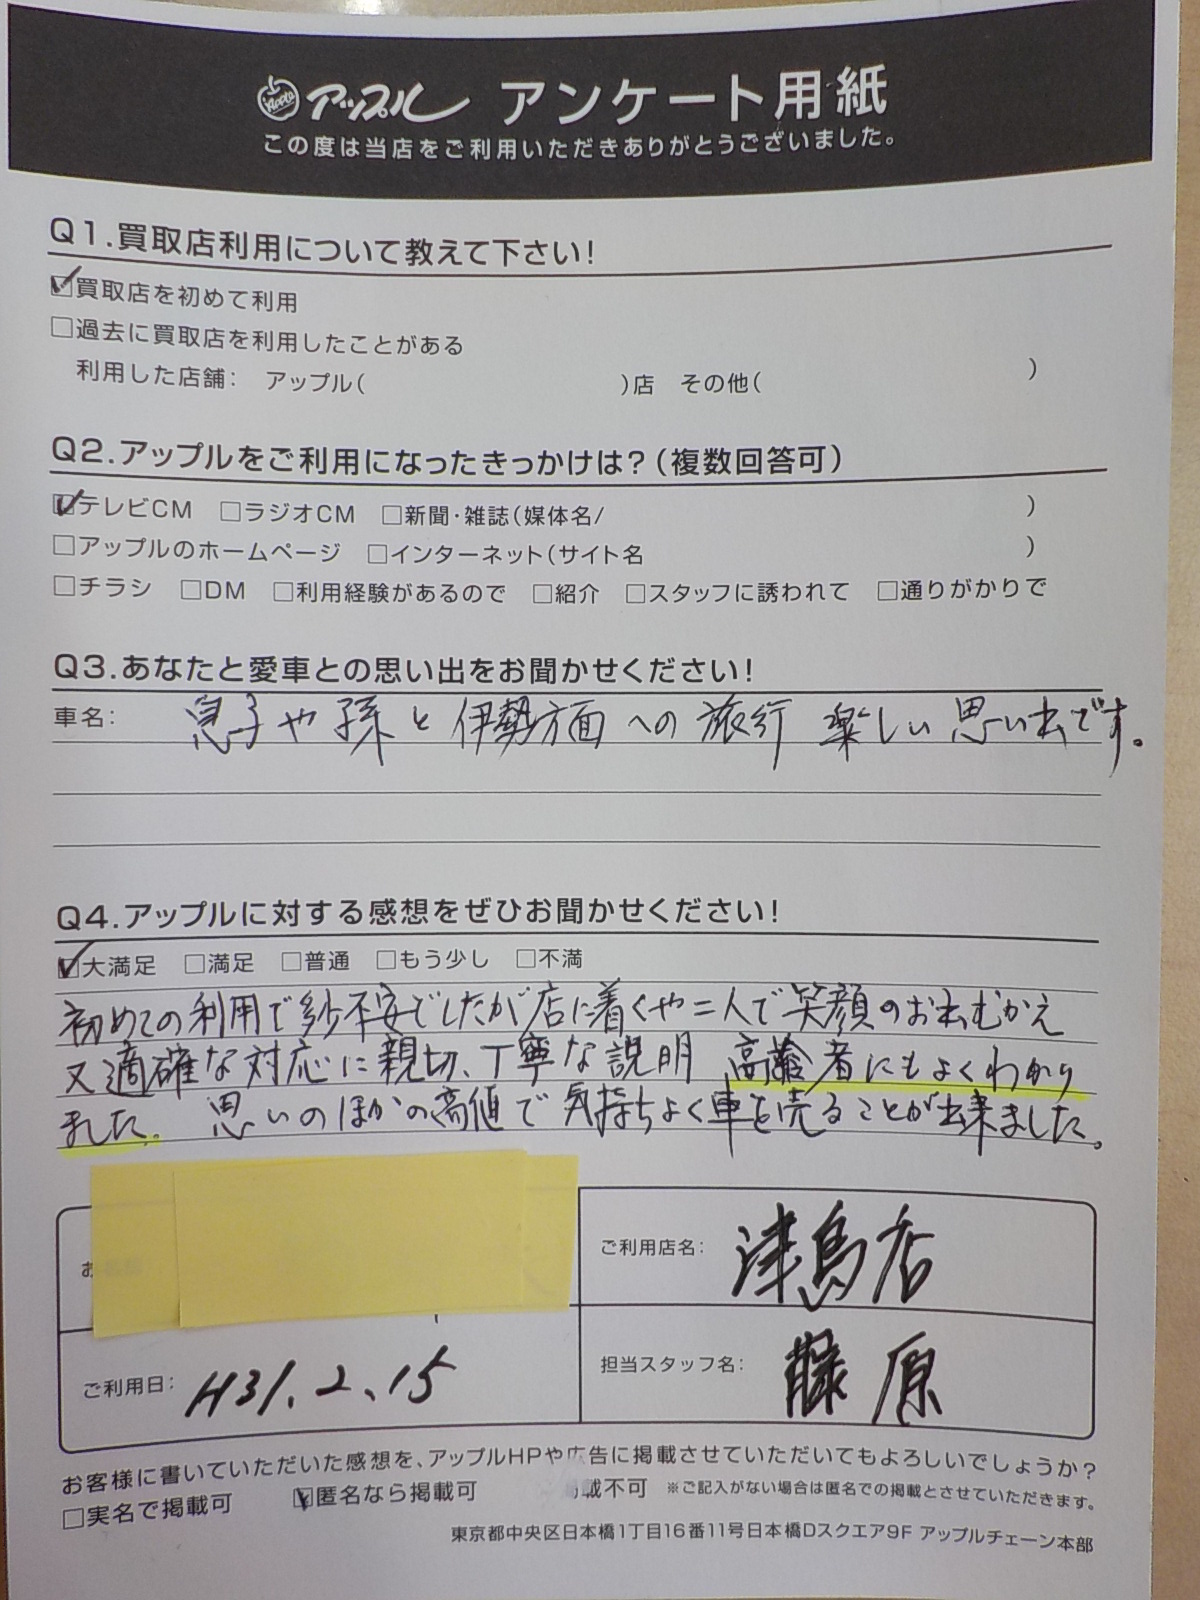 Apple アップル アンケート用紙
この度は当店をご利用いただきありがとうございました。
Q1.買取店利用について教えて下さい!
☑買取店を初めて利用
□過去に買取店を利用したことがある
利用した店舗: アップル( )店 その他( )
Q2.アップルをご利用になったきっかけは?(複数回答可)
☑テレビCM □ラジオCM □新聞・雑誌(媒体名/ )
□アップルのホームページ □インターネット(サイト名 )
□チラシ □DM □利用経験があるので □紹介 □スタッフに誘われて □通りがかりで
Q3.あなたと愛車との思い出をお聞かせください!
車名: 息子や孫と伊勢方面への旅行 楽しい思い出です。
Q4.アップルに対する感想をぜひお聞かせください!
☑大満足 □満足 □普通 □もう少し □不満
初めての利用で多少不安でしたが店に着くや二人で笑顔のお出むかえ
又適確な対応に親切、丁寧な説明 高齢者にもよくわかり
ました。 思いのほかの高値で気持ちよく車を売ることが出来ました。
お
ご利用店名: 津島店
ご利用日: H31.2.15
担当スタッフ名: 藤原
お客様に書いていただいた感想を、アップルHPや広告に掲載させていただいてもよろしいでしょうか?
□実名で掲載可 ☑匿名なら掲載可 載不可 ※ご記入がない場合は匿名での掲載とさせていただきます。
東京都中央区日本橋1丁目16番11号日本橋Dスクエア9F アップルチェーン本部